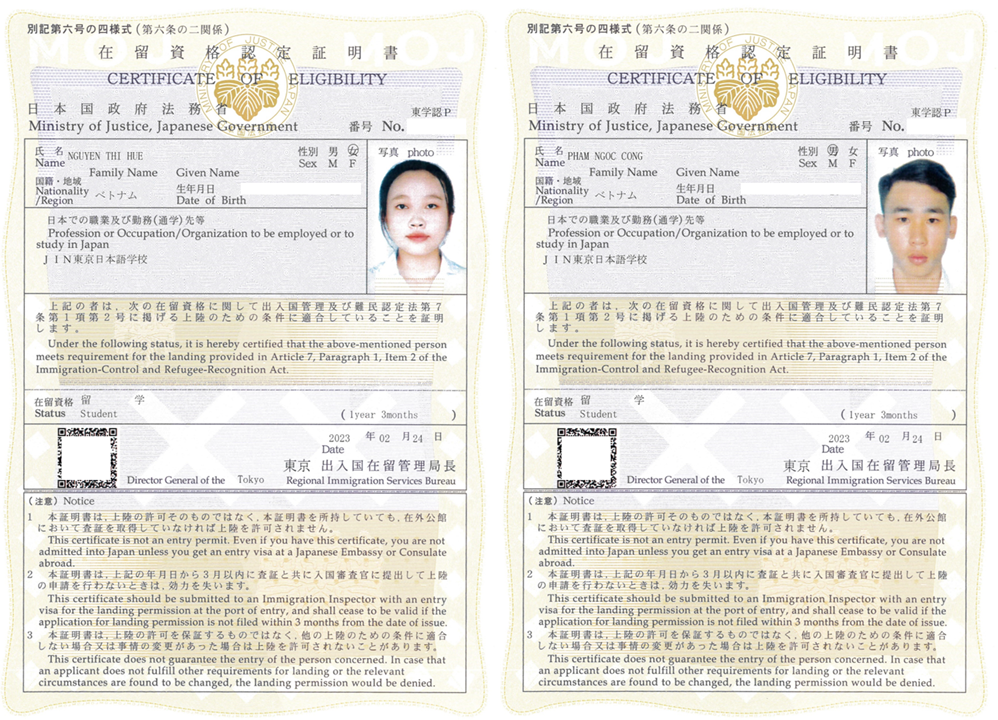 別記第六号の四様式(第六条の二関係)
在留資格認定証明書
CERTIFICATE OF ELIGIBILITY
日本国政府法務省
東学認P
Ministry of Justice, Japanese Government
番号 No.
氏名 NGUYEN THI HUE
性別 男 女
写真 photo
Name
Sex M F
Family Name Given Name
国籍・地域
生年月日
Nationality ベトナム
/Region
Date of Birth
日本での職業及び勤務(通学)先等
Profession or Occupation/Organization to be employed or to
study in Japan
JIN東京日本語学校
上記の者は,次の在留資格に関して出入国管理及び難民認定法第7
条第1項第2号に掲げる上陸のための条件に適合していることを証明
します。
Under the following status, it is hereby certified that the above-mentioned person
meets requirement for the landing provided in Article 7, Paragraph 1, Item 2 of the
Immigration-Control and Refugee-Recognition Act.
在留資格 留 学
Status Student (1year 3months )
2023 年 02 月 24 日
Date
東京 出入国在留管理局長
Director General of the Tokyo Regional Immigration Services Bureau
(注意) Notice
1 本証明書は,上陸の許可そのものではなく,本証明書を所持していても,在外公館
において査証を取得していなければ上陸を許可されません。
This certificate is not an entry permit. Even if you have this certificate, you are not
admitted into Japan unless you get an entry visa at a Japanese Embassy or Consulate
abroad.
2 本証明書は,上記の年月日から3月以内に査証と共に入国審査官に提出して上陸
の申請を行わないときは,効力を失います。
This certificate should be submitted to an Immigration Inspector with an entry
visa for the landing permission at the port of entry, and shall cease to be valid if the
application for landing permission is not filed within 3 months from the date of issue.
3 本証明書は,上陸の許可を保証するものではなく,他の上陸のための条件に適合
しない場合又は事情の変更があった場合は上陸を許可されないことがあります。
This certificate does not guarantee the entry of the person concerned. In case that
an applicant does not fulfill other requirements for landing or the relevant
circumstances are found to be changed, the landing permission would be denied.
別記第六号の四様式(第六条の二関係)
在留資格認定証明書
CERTIFICATE OF ELIGIBILITY
日本国政府法務省
東学認P
Ministry of Justice, Japanese Government
番号 No.
氏名 PHAM NGOC CONG
性別 男 女
写真 photo
Name
Sex M F
Family Name Given Name
国籍・地域
生年月日
Nationality ベトナム
/Region
Date of Birth
日本での職業及び勤務(通学)先等
Profession or Occupation/Organization to be employed or to
study in Japan
JIN東京日本語学校
上記の者は,次の在留資格に関して出入国管理及び難民認定法第7
条第1項第2号に掲げる上陸のための条件に適合していることを証明
します。
Under the following status, it is hereby certified that the above-mentioned person
meets requirement for the landing provided in Article 7, Paragraph 1, Item 2 of the
Immigration-Control and Refugee-Recognition Act.
在留資格 留 学
Status Student (1year 3months )
2023 年 02 月 24 日
Date
東京 出入国在留管理局長
Director General of the Tokyo Regional Immigration Services Bureau
(注意) Notice
1 本証明書は,上陸の許可そのものではなく,本証明書を所持していても,在外公館
において査証を取得していなければ上陸を許可されません。
This certificate is not an entry permit. Even if you have this certificate, you are not
admitted into Japan unless you get an entry visa at a Japanese Embassy or Consulate
abroad.
2 本証明書は,上記の年月日から3月以内に査証と共に入国審査官に提出して上陸
の申請を行わないときは,効力を失います。
This certificate should be submitted to an Immigration Inspector with an entry
visa for the landing permission at the port of entry, and shall cease to be valid if the
application for landing permission is not filed within 3 months from the date of issue.
3 本証明書は,上陸の許可を保証するものではなく,他の上陸のための条件に適合
しない場合又は事情の変更があった場合は上陸を許可されないことがあります。
This certificate does not guarantee the entry of the person concerned. In case that
an applicant does not fulfill other requirements for landing or the relevant
circumstances are found to be changed, the landing permission would be denied.